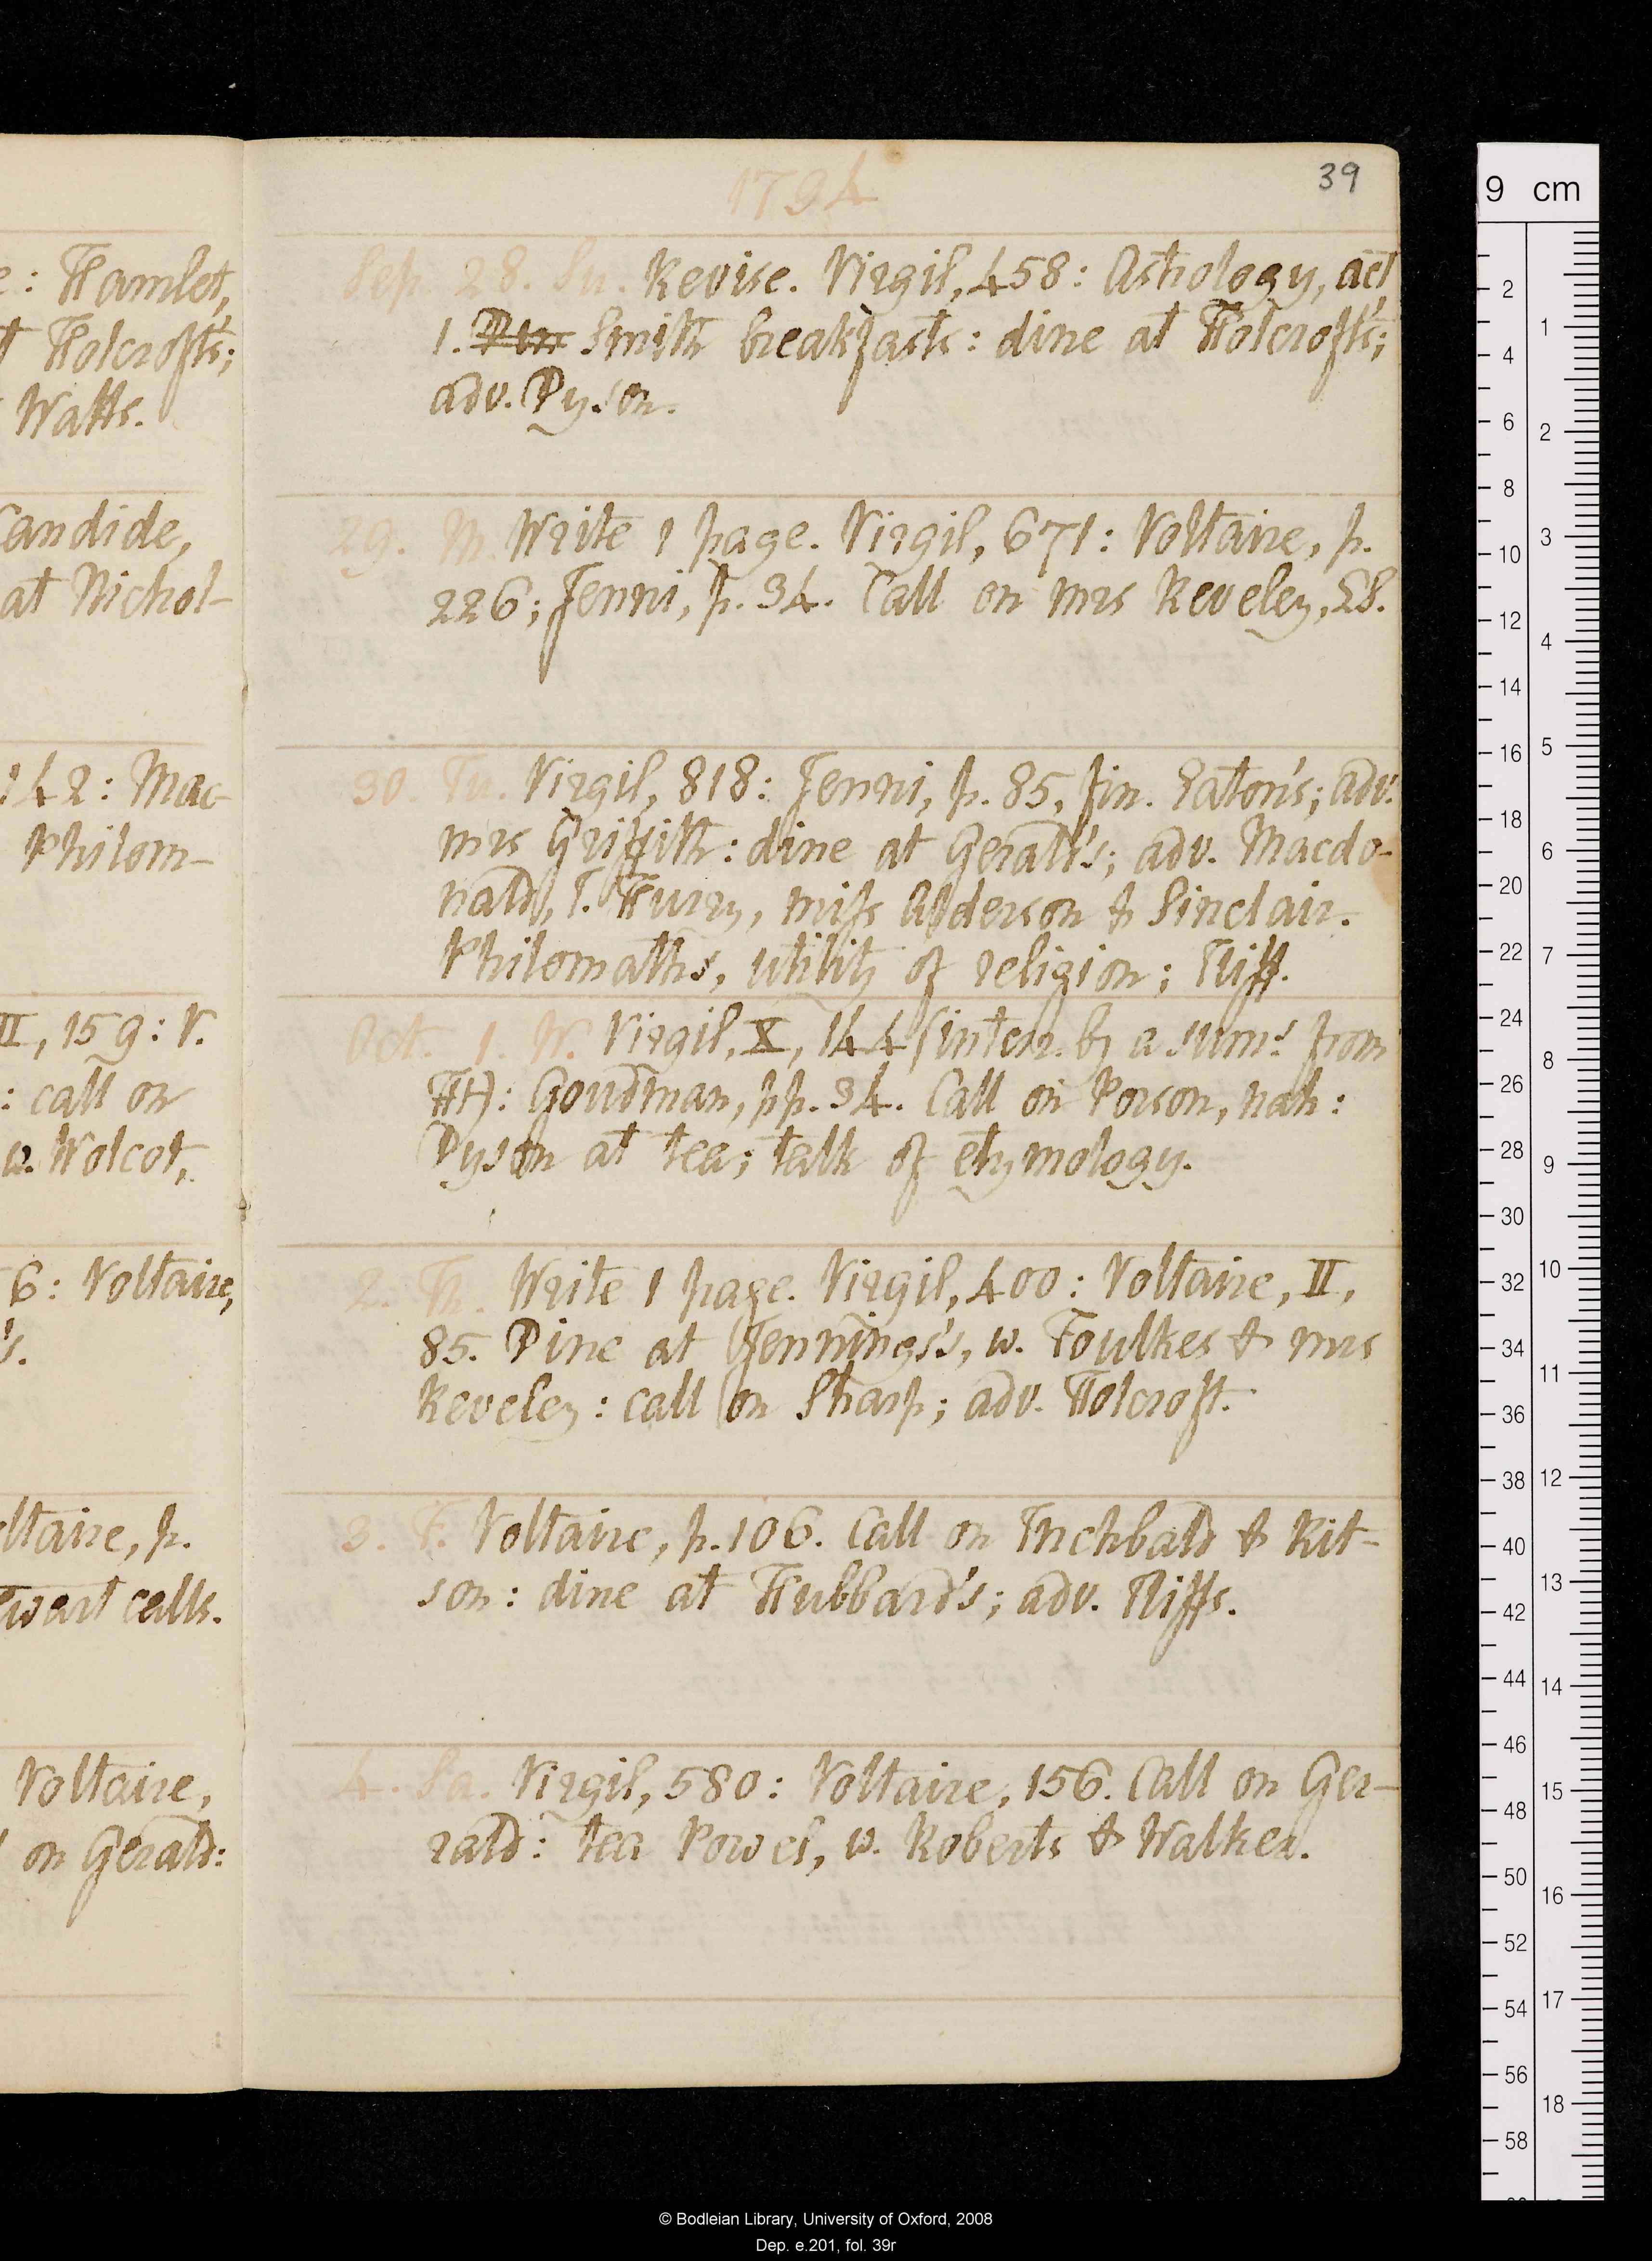 39
1794
e: Hamlet,
t Holcroft's;
Watts.
Candide,
at Nichol-
142: Mac-
Philom-
II, 159: V.
: call on
w. Wolcot,
6: Voltaire,
's.
oltaire, p.
ewart calls.
Voltaire,
on Gerald:
Sep. 28. Su. Revise. Virgil, 458: Astrology, act
1. Din Smith breakfasts: dine at Holcroft's;
adv. Dyson.
29. M. Write 1 page. Virgil, 671: Voltaire, p.
226; Jenni, p. 34. Call on mrs Reveley,
30. Tu. Virgil, 818: Jenni, p. 85, fin. Eaton's; adv.
mrs Griffith: dine at Gerald's; adv. Macdo-
nald, T. Hurry, miss Alderson & Sinclair.
Philomaths, utility of religion; Iliff.
Oct. 1. W. Virgil, X, 144 (interr. by a sums from
Ht): Goudman, pp. 34. Call on Porson, nah:
Dyson at tea; talk of etymology.
2. Th. Write 1 page. Virgil, 400: Voltaire, II,
85. Dine at Jennings's, w. Foulkes & mrs
Reveley: call on Sharp; adv. Holcroft.
3. F. Voltaire, p. 106. Call on Inchbald & Rit-
son: dine at Hubbard's; adv. Iliffs.
4. Sa. Virgil, 580: Voltaire, 156. Call on Ger-
rald: tea Powel, w. Roberts & Walker.
9 cm
2
4
6
8
10
12
14
16
18
20
22
24
26
28
30
32
34
36
38
40
42
44
46
48
50
52
54
56
58
1
2
3
4
5
6
7
8
9
10
11
12
13
14
15
16
17
18
© Bodleian Library, University of Oxford, 2008
Dep. e.201, fol. 39r